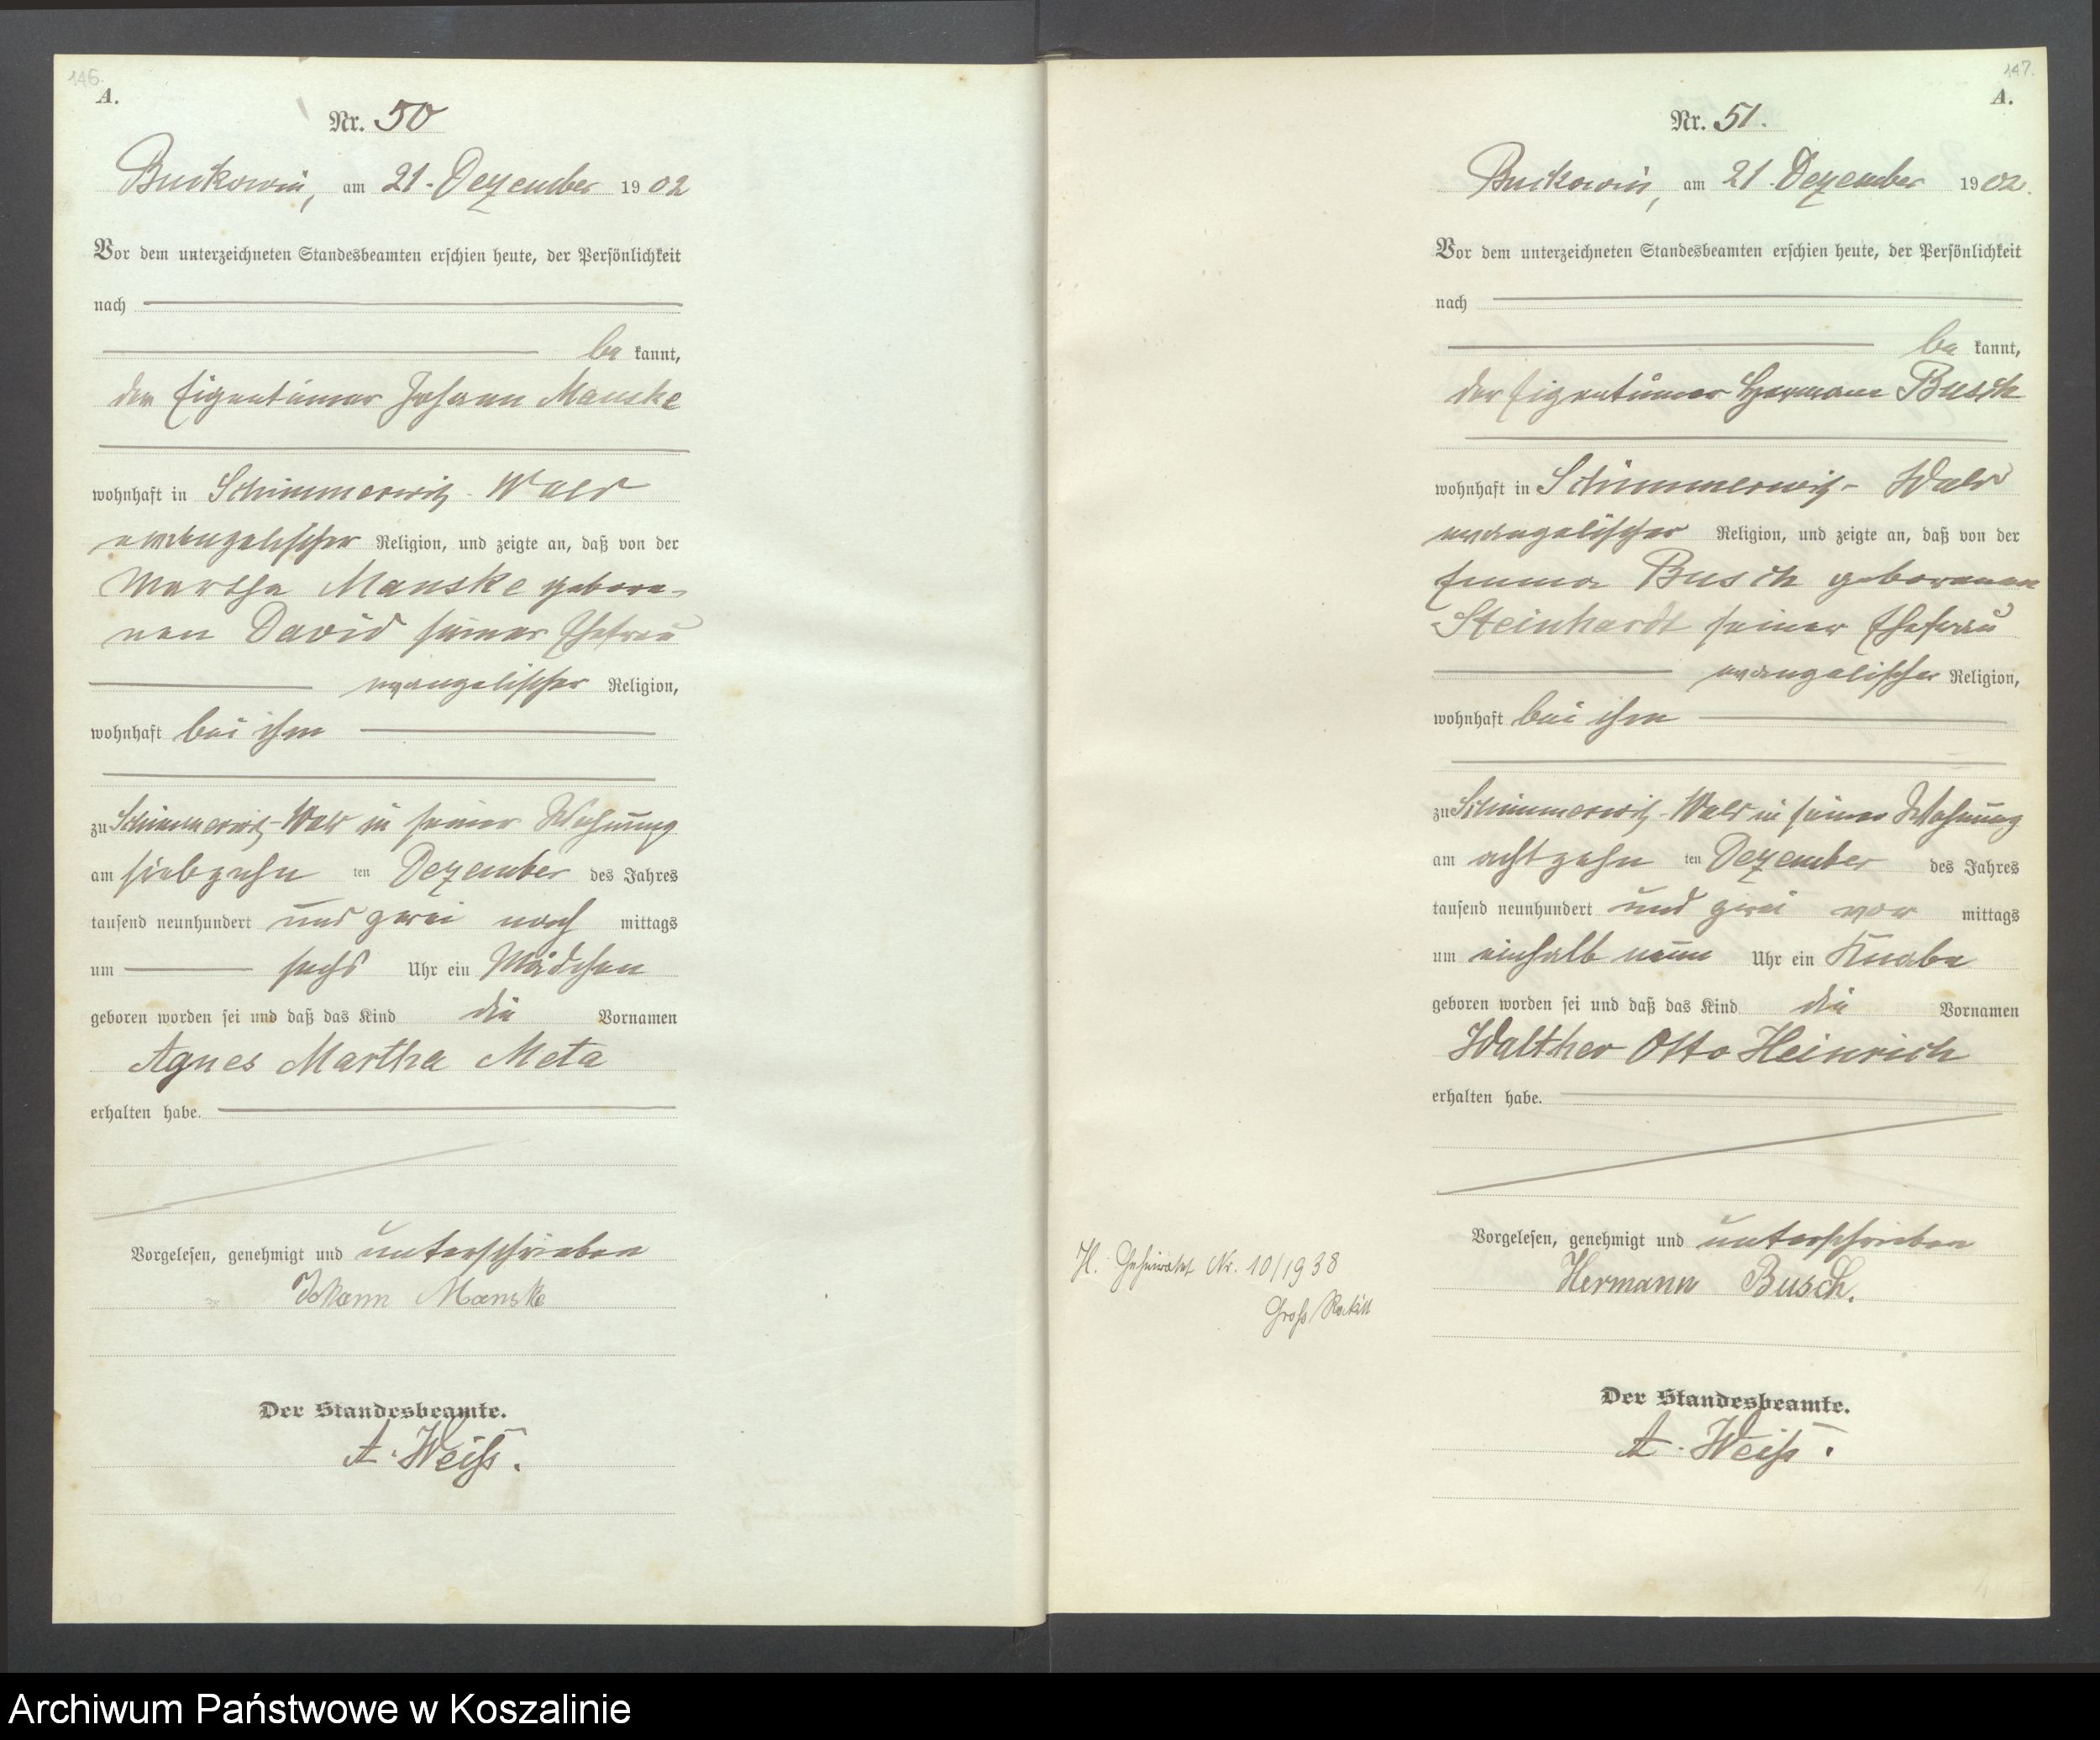 146.
A.
Nr. 50
Buckowin, am 21. Dezember 1902
Vor dem unterzeichneten Standesbeamten erschien heute, der Persönlichkeit
nach
be kannt,
der Eigentümer Johann Manske
wohnhaft in Schimmerwitz-Wald
evangelischer Religion, und zeigte an, daß von der
Martha Manske gebore-
nen David seiner Ehefrau
evangelischer Religion,
wohnhaft bei ihm
zu Schimmerwitz-Wald in seiner Wohnung
am siebzehn ten Dezember des Jahres
tausend neunhundert und zwei nach mittags
um sechs Uhr ein Mädchen
geboren worden sei und daß das Kind die Vornamen
Agnes Martha Meta
erhalten habe.
Vorgelesen, genehmigt und unterschrieben
Johann Manske
Der Standesbeamte.
A. Weiß.
147.
A.
Nr. 51.
Buckowin, am 21. Dezember 1902.
Vor dem unterzeichneten Standesbeamten erschien heute, der Persönlichkeit
nach
be kannt,
der Eigentümer Hermann Busch
wohnhaft in Schimmerwitz-Wald
evangelischer Religion, und zeigte an, daß von der
Emma Busch geborenen
Steinhardt seiner Ehefrau
evangelischer Religion,
wohnhaft bei ihm
zu Schimmerwitz-Wald in seiner Wohnung
am achtzehn ten Dezember des Jahres
tausend neunhundert und zwei vor mittags
um einhalb neun Uhr ein Knabe
geboren worden sei und daß das Kind die Vornamen
Walther Otto Heinrich
erhalten habe.
Vorgelesen, genehmigt und unterschrieben
Hermann Busch.
Der Standesbeamte.
A. Weiß.
Geheiratet Nr. 10/1938
Groß Rakitt
Archiwum Państwowe w Koszalinie